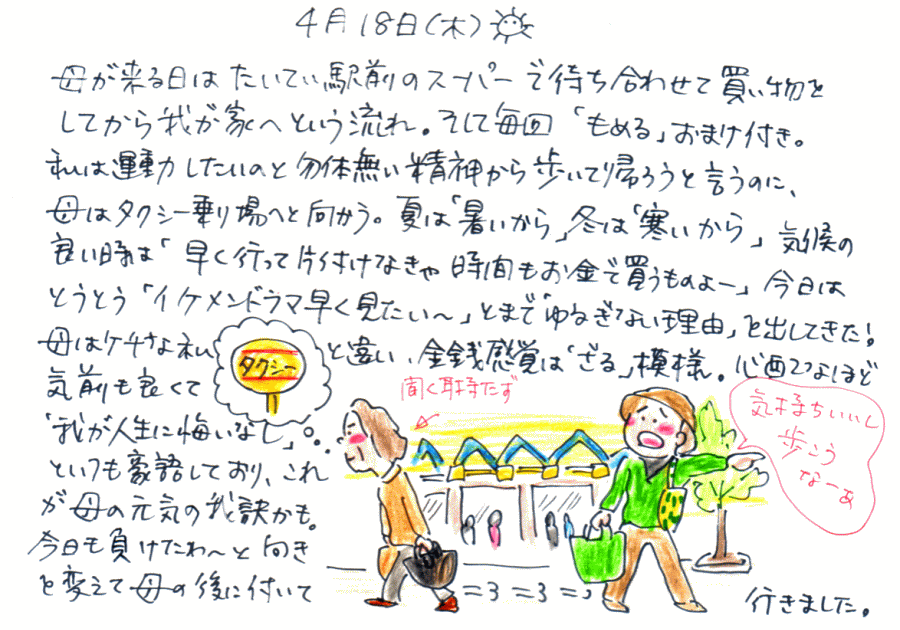 4月18日(木)
母が来る日はたいてい駅前のスーパーで待ち合わせて買い物を
してから我が家へという流れ。そして毎回「もめる」おまけ付き。
私は運動したいのと勿体無い精神から歩いて帰ろうと言うのに、
母はタクシー乗り場へと向かう。夏は「暑いから」冬は「寒いから」気候の
良い時は「早く行って片付けなきゃ時間もお金で買うものよー」今日は
とうとう「イケメンドラマ早く見たい〜」とまで「ゆるぎない理由」を出してきた!
母はケチな私と違い、金銭感覚は「ざる」模様。心配つよほど
気前も良くて
「我が人生に悔いなし」。
といつも豪語しており、これ
が母の元気の秘訣かも。
今日も負けたわ〜と向き
を変えて母の後に付いて
行きました。
タクシー
聞く耳持たず
気持ちいいし
歩こう
なーぁ